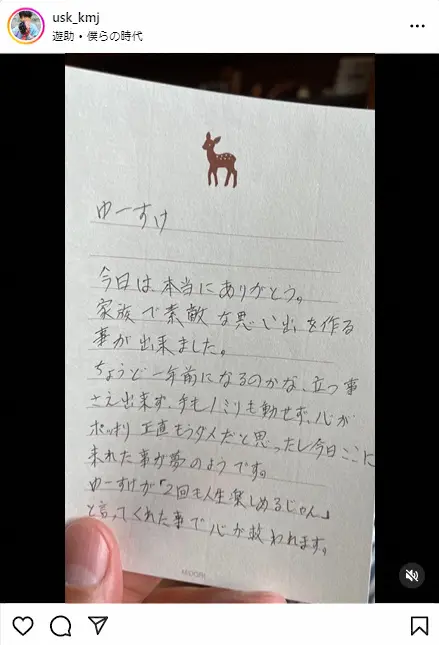 usk_kmj
遊助・僕らの時代
ゆーすけ
今日は本当にありがとう。
家族で素敵な思い出を作る
事が出来ました。
ちょうど一年前になるのかな、立つ事
さえ出来ず、手も1ミリも動せず、心が
ポッキリ 正直もうダメだと思ったし今日ここに
来れた事が夢のようです。
ゆーすけが「2回も人生楽しめるじゃん」
と言ってくれた事で心が救われます。
MIDORI